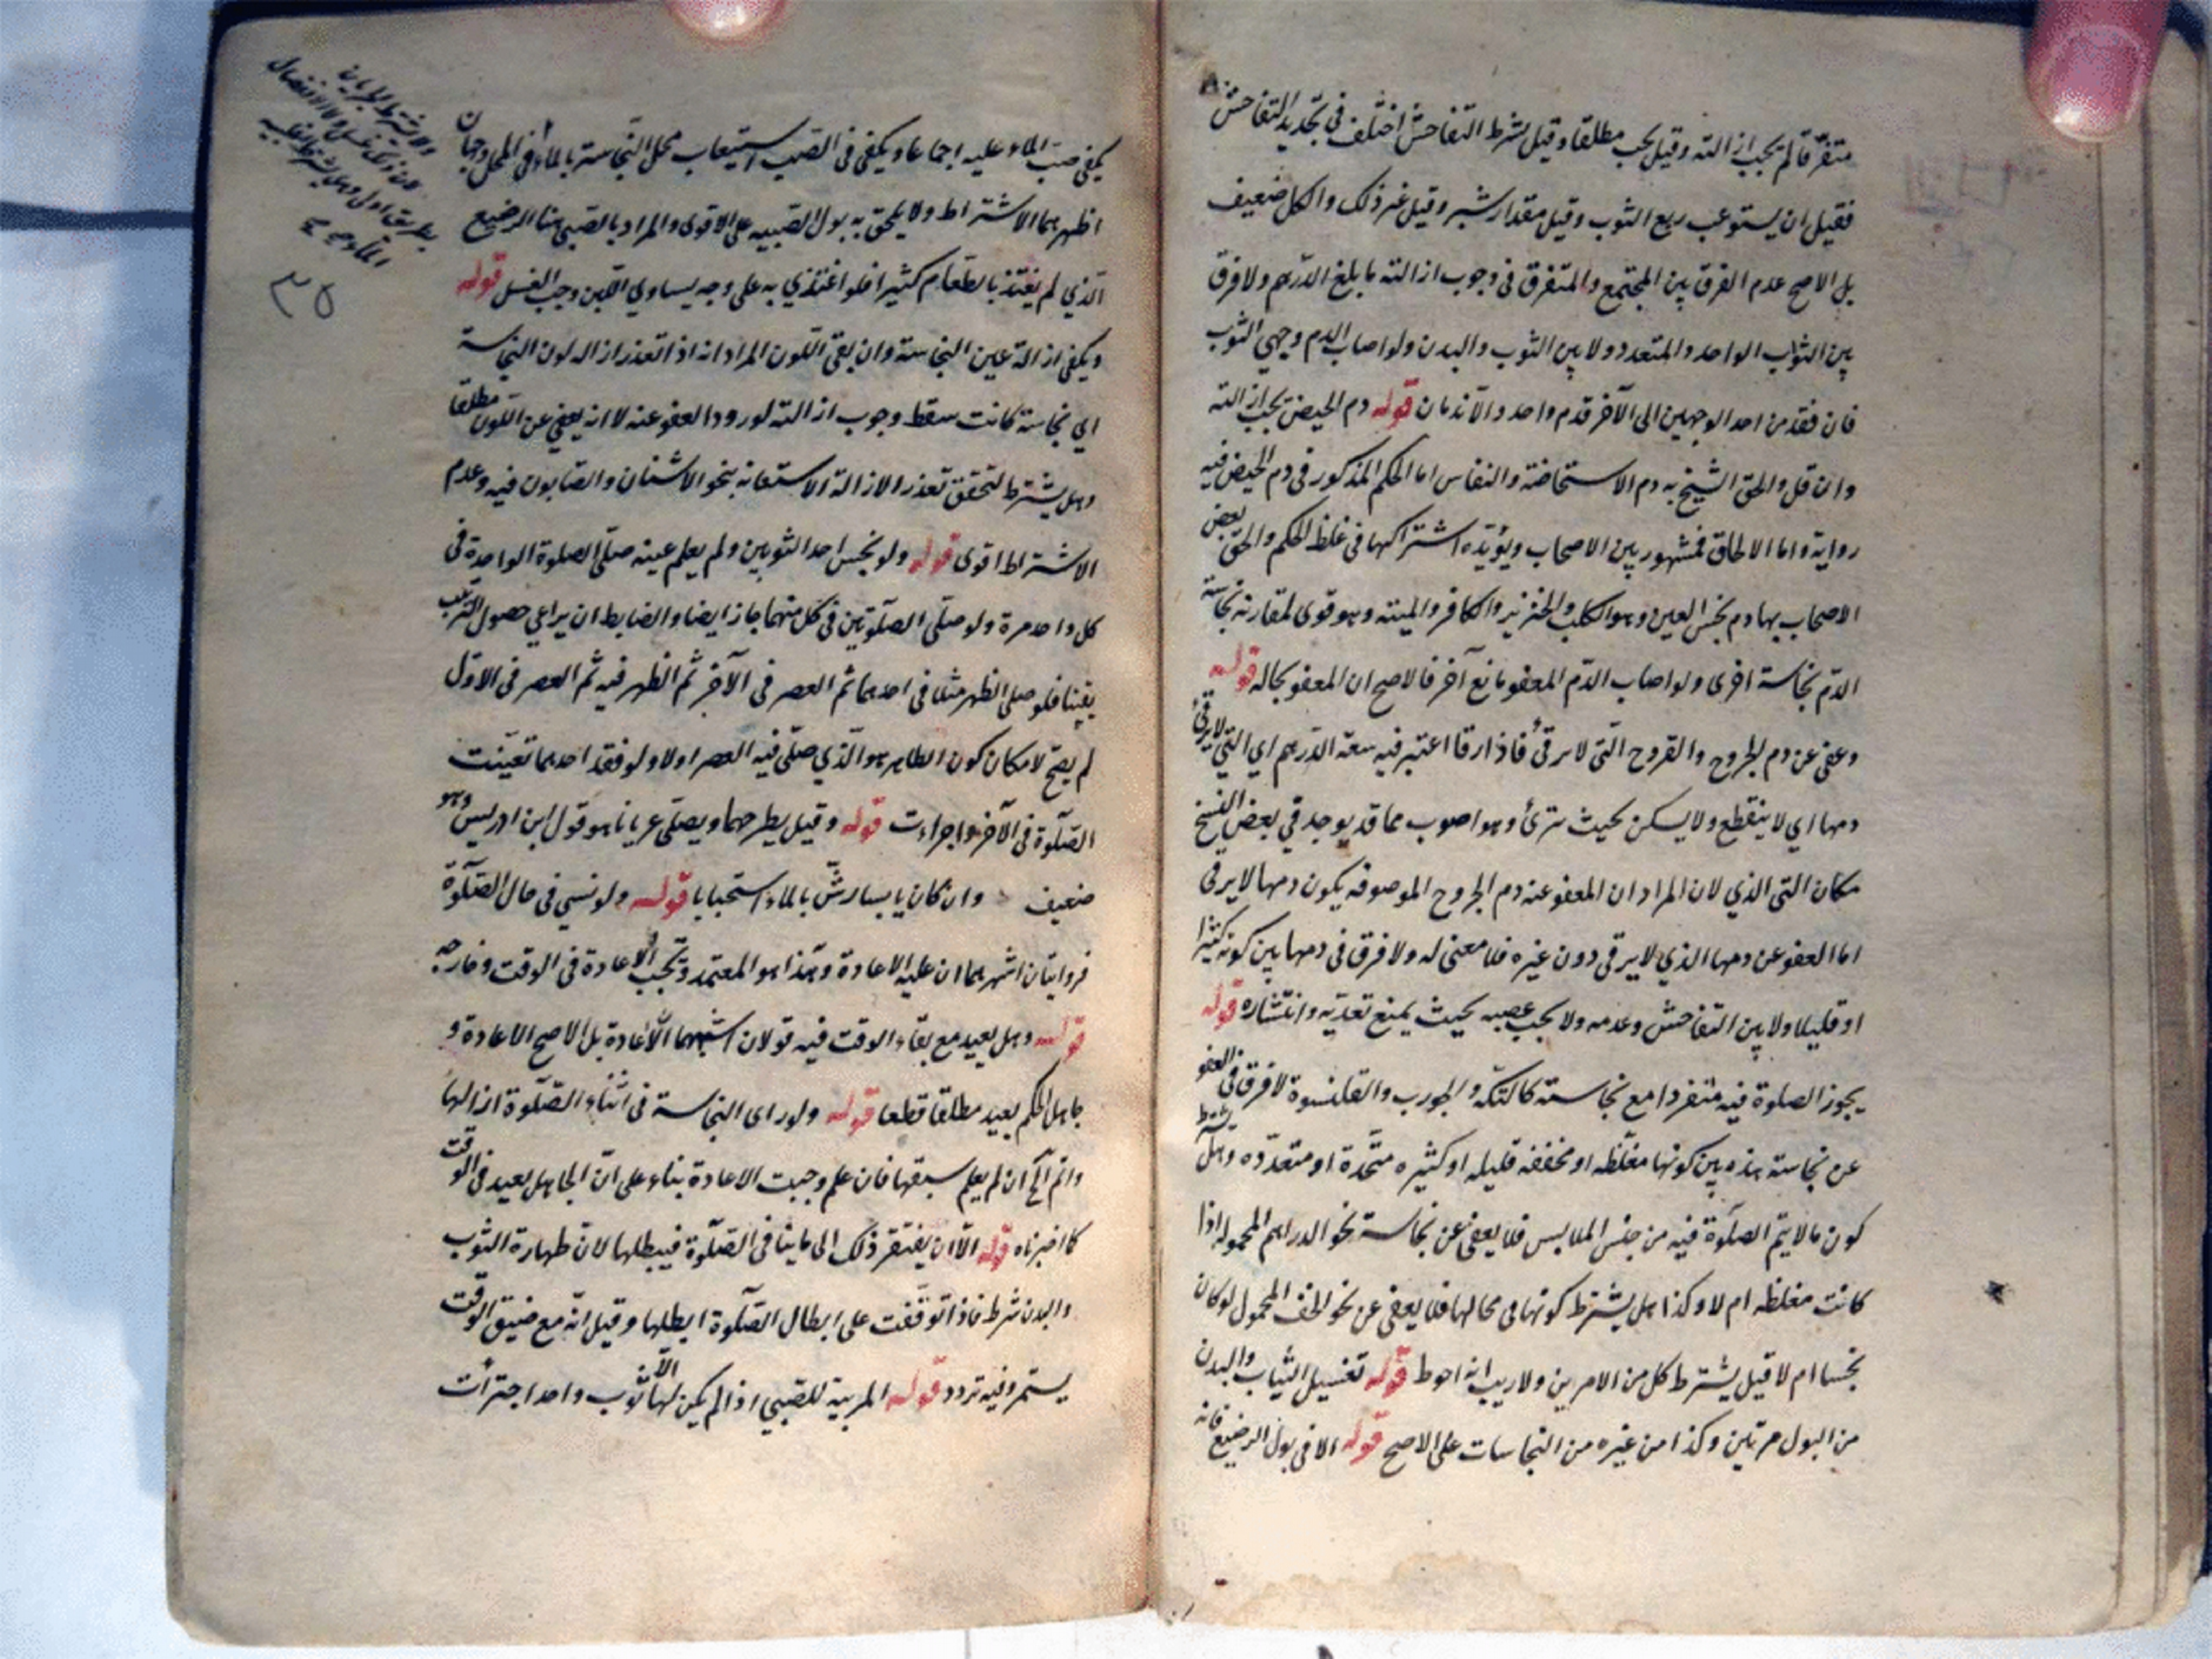 متفرقا لم يجب ازالته وقيل يجب مطلقا وقيل بشرط التفاحش اختلف في تحديد التفاحش
فقيل ان يستوعب ربع الثوب وقيل مقدار شبر وقيل غير ذلك والكل ضعيف
بل الاصح عدم الفرق بين المجتمع والمتفرق في وجوب ازالته ما بلغ الدرهم ولا فرق
بين الثواب الواحد والمتعدد ولا بين الثوب والبدن ولو اصاب الدم وجهي الثوب
فان نفذ من احد الوجهين الى الآخر فدم واحد والا ندمان قوله دم الحيض تجب ازالته
وان قل والحق الشيخ به دم الاستحاضة والنفاس اما الحكم المذكور في دم الحيض فيه
رواية واما الالحاق فمشهور بين الاصحاب ويؤيده اشتراكها في غلظ الحكم والحق بعض
الاصحاب بها دم نجس العين وهو الكلب والخنزير والكافر والميتة وهو قوى لمقارنة نجاسة
الدم نجاسة اخرى ولو اصاب الدم المعفو مايع آخر فالاصح ان المعفو بحاله قوله
وعفى عن دم الجروح والقروح التى لا ترقى فاذا رقا اعتبر فيه سعة الدرهم اي التي لا يرقى
دمها اي لا ينقطع ولا يسكن بحيث ترئ وهو اصوب مما قد يوجد في بعض النسخ
مكان التى الذي لان المراد ان المعفو عنه دم الجروح الموصوفه بكون دمها لا يرقى
اما العفو عن دمها الذي لا يرقى دون غيره فلا معنى له ولا فرق في دمها بين كونه كثيرا
او قليلا ولا بين التفاحش وعدمه ولا يجب عصبه بحيث يمنع تعديه وانتشاره قوله
يجوز الصلوة فيه منفردا مع نجاسته كالتكة والجورب والقلنسوة لا فرق في العفو
عن نجاسة هذه بين كونها مغلظه او مخففه قليله او كثيره متحدة او متعدده وهل يشترط
كون ما لا يتم الصلوة فيه من جنس الملابس فلا يعفى عن نجاسة نحو الدراهم المحموله اذا
كانت مغلظه ام لا وكذا هل يشترط كونها في محالها فلا يعفى عن نحو الخف المحمول لو كان
نجسا ام لا قيل يشترط كل من الامرين ولا ريب انه احوط قوله تغسيل الثياب والبدن
من البول مرتين وكذا من غيره من النجاسات على الاصح قوله الا في بول الرضيع فانه
يكفي صب الماء عليه اجماعا ويكفى فى الصب استيعاب محل النجاسة بالماء وفي المحل وجهان
اظهرهما الاشتراط ولا يلحق به بول الصبيه على الاقوى والمراد بالصبي هنا الرضيع
الذي لم يغتذ بالطعام كثيرا فلو اغتذي به على وجه يساوي اللبن وجب الغسل قوله
ويكفي ازالة عين النجاسة وان بقى اللون المراد انه اذا تعذر ازاله لون النجاسة
اي نجاسة كانت سقط وجوب ازالته لورود العفو عنه لا انه يعفى عن اللون مطلقا
وهل يشترط لتحقق تعذر الازالة الاستعانة بنحو الاشنان والصابون فيه وعدم
الاشتراط اقوى قوله ولو نجس احد الثوبين ولم يعلم عينه صلى الصلوة الواحدة فى
كل واحد مرة ولو صلى الصلوتين في كل منهما جاز ايضا والضابط ان يراعي حصول الترتيب
يقينا فلو صلى الظهر مثلا في احدهما ثم العصر في الآخر ثم الظهر فيه ثم العصر فى الاول
لم يصح لامكان كون الطاهر هو الذي صلى فيه العصر اولا ولو فقد احدهما تعينت
الصلوة فى الآخر واجزاءت قوله وقيل يطرحهما ويصلى عريانا هو قول ابن ادريس وهو
ضعيف وان كان يابسا رش بالماء استحبابا قوله ولو نسي في حال الصلوة
فروايتان اشهرهما ان عليه الاعادة وهذا هو المعتمد وتجب الاعادة في الوقت وخارجه
قوله وهل يعيد مع بقاء الوقت فيه قولان اشبههما الاعادة بل الاصح الاعادة و
جاهل الحكم يعيد مطلقا قطعا قوله ولو راى النجاسة في اثناء الصلوة ازالها
واتم الخ ان لم يعلم سبقها فان علم وجبت الاعادة بناء على ان الجاهل يعيد في الوقت
كما اخبرناه قوله الا ان يفتقر ذلك الى ما ينافى الصلوة فيبطلها لان طهارة الثوب
والبدن شرط فاذا توقفت على ابطال الصلوة ابطلها وقيل انه مع ضيق الوقت
يستمر وفيه تردد قوله المربية للصبي اذا لم يكن لها الا ثوب واحد اجتزأت
٣٥